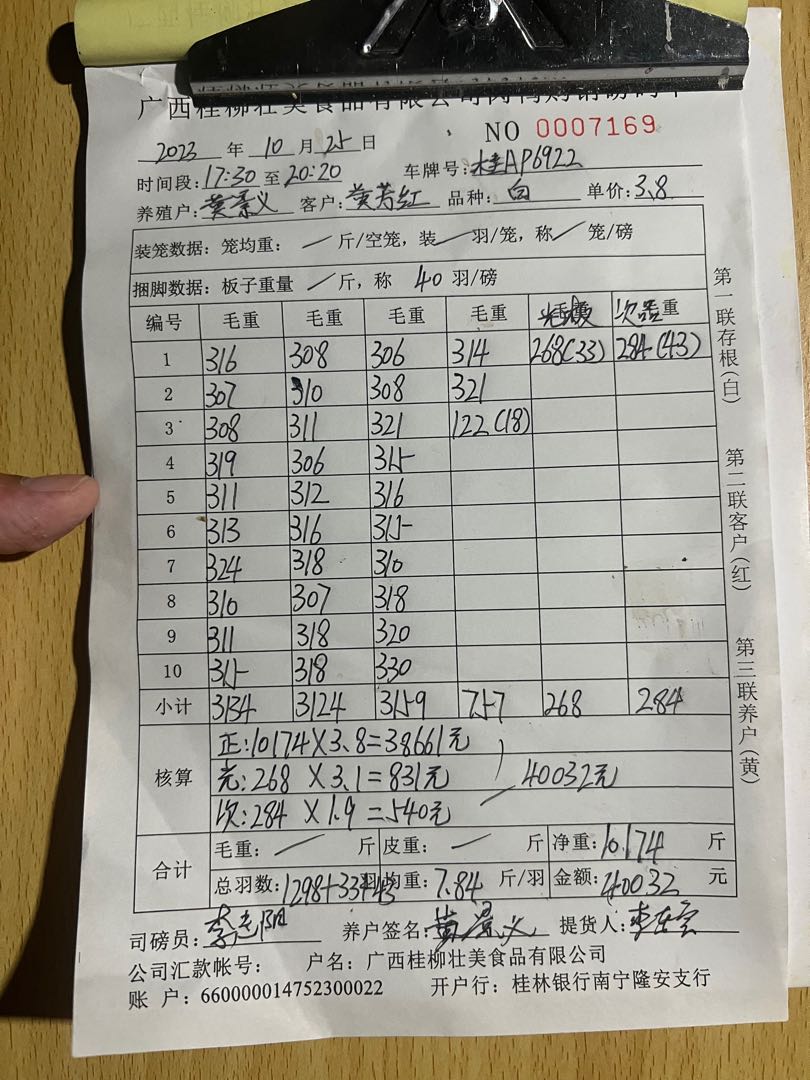 广西桂柳壮美食品有限公司肉鸭购销磅码单
NO 0007169
2023 年 10 月 25 日
时间段: 17:30 至 20:20 车牌号: 桂AP6922
养殖户: 黄景义 客户: 黄芳红 品种: 白 单价: 3.8
装笼数据: 笼均重: / 斤/空笼, 装 / 羽/笼, 称 / 笼/磅
捆脚数据: 板子重量 / 斤, 称 40 羽/磅
编号 毛重 毛重 毛重 毛重 次品重
1 316 308 306 314 268(33) 284(43)
2 307 310 308 321
3 308 311 321 122(18)
4 319 306 315
5 311 312 316
6 313 316 315
7 324 318 310
8 310 307 318
9 311 318 320
10 315 318 330
小计 3134 3124 3159 757 268 284
核算
正:10174×3.8=38661元
光:268×3.1=831元
次:284×1.9=540元
40032元
合计
毛重: / 斤 皮重: / 斤 净重: 10174 斤
总羽数: 1298+33+43 羽 均重: 7.84 斤/羽 金额: 40032 元
司磅员: 李志阳 养户签名: 黄景义 提货人:
公司汇款帐号: 户名: 广西桂柳壮美食品有限公司
账 户: 660000014752300022 开户行: 桂林银行南宁隆安支行
第一联存根(白)
第二联客户(红)
第三联养户(黄)